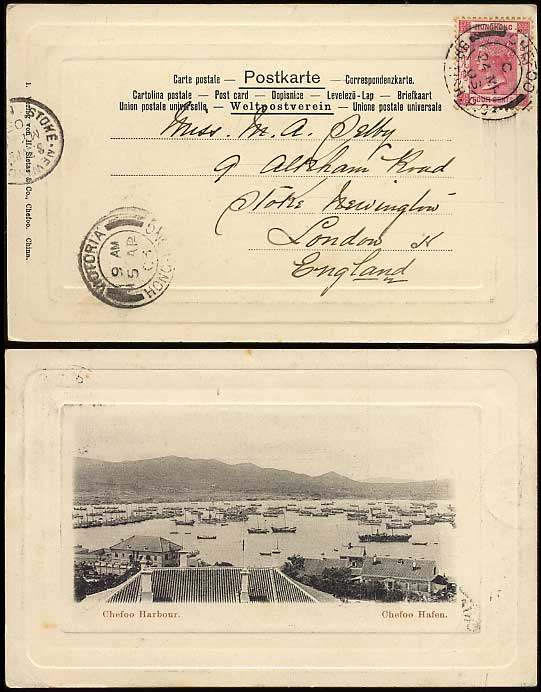 Carte postale — Postkarte — Correspondenzkarte.
Cartolina postale — Post card — Dopisnice — Levelező-Lap — Briefkaart
Union postale universelle. — Weltpostverein — Unione postale universale
HONGKONG
FOUR CENTS
Miss. M. A. Selby
9 Alkham Road
Stoke Newington
London N
England
VICTORIA
9 AM
5 AP
03
HONG
STOKE NEW
1. Verlag von H. Sietas & Co., Chefoo. China.
Chefoo Harbour. Chefoo Hafen.